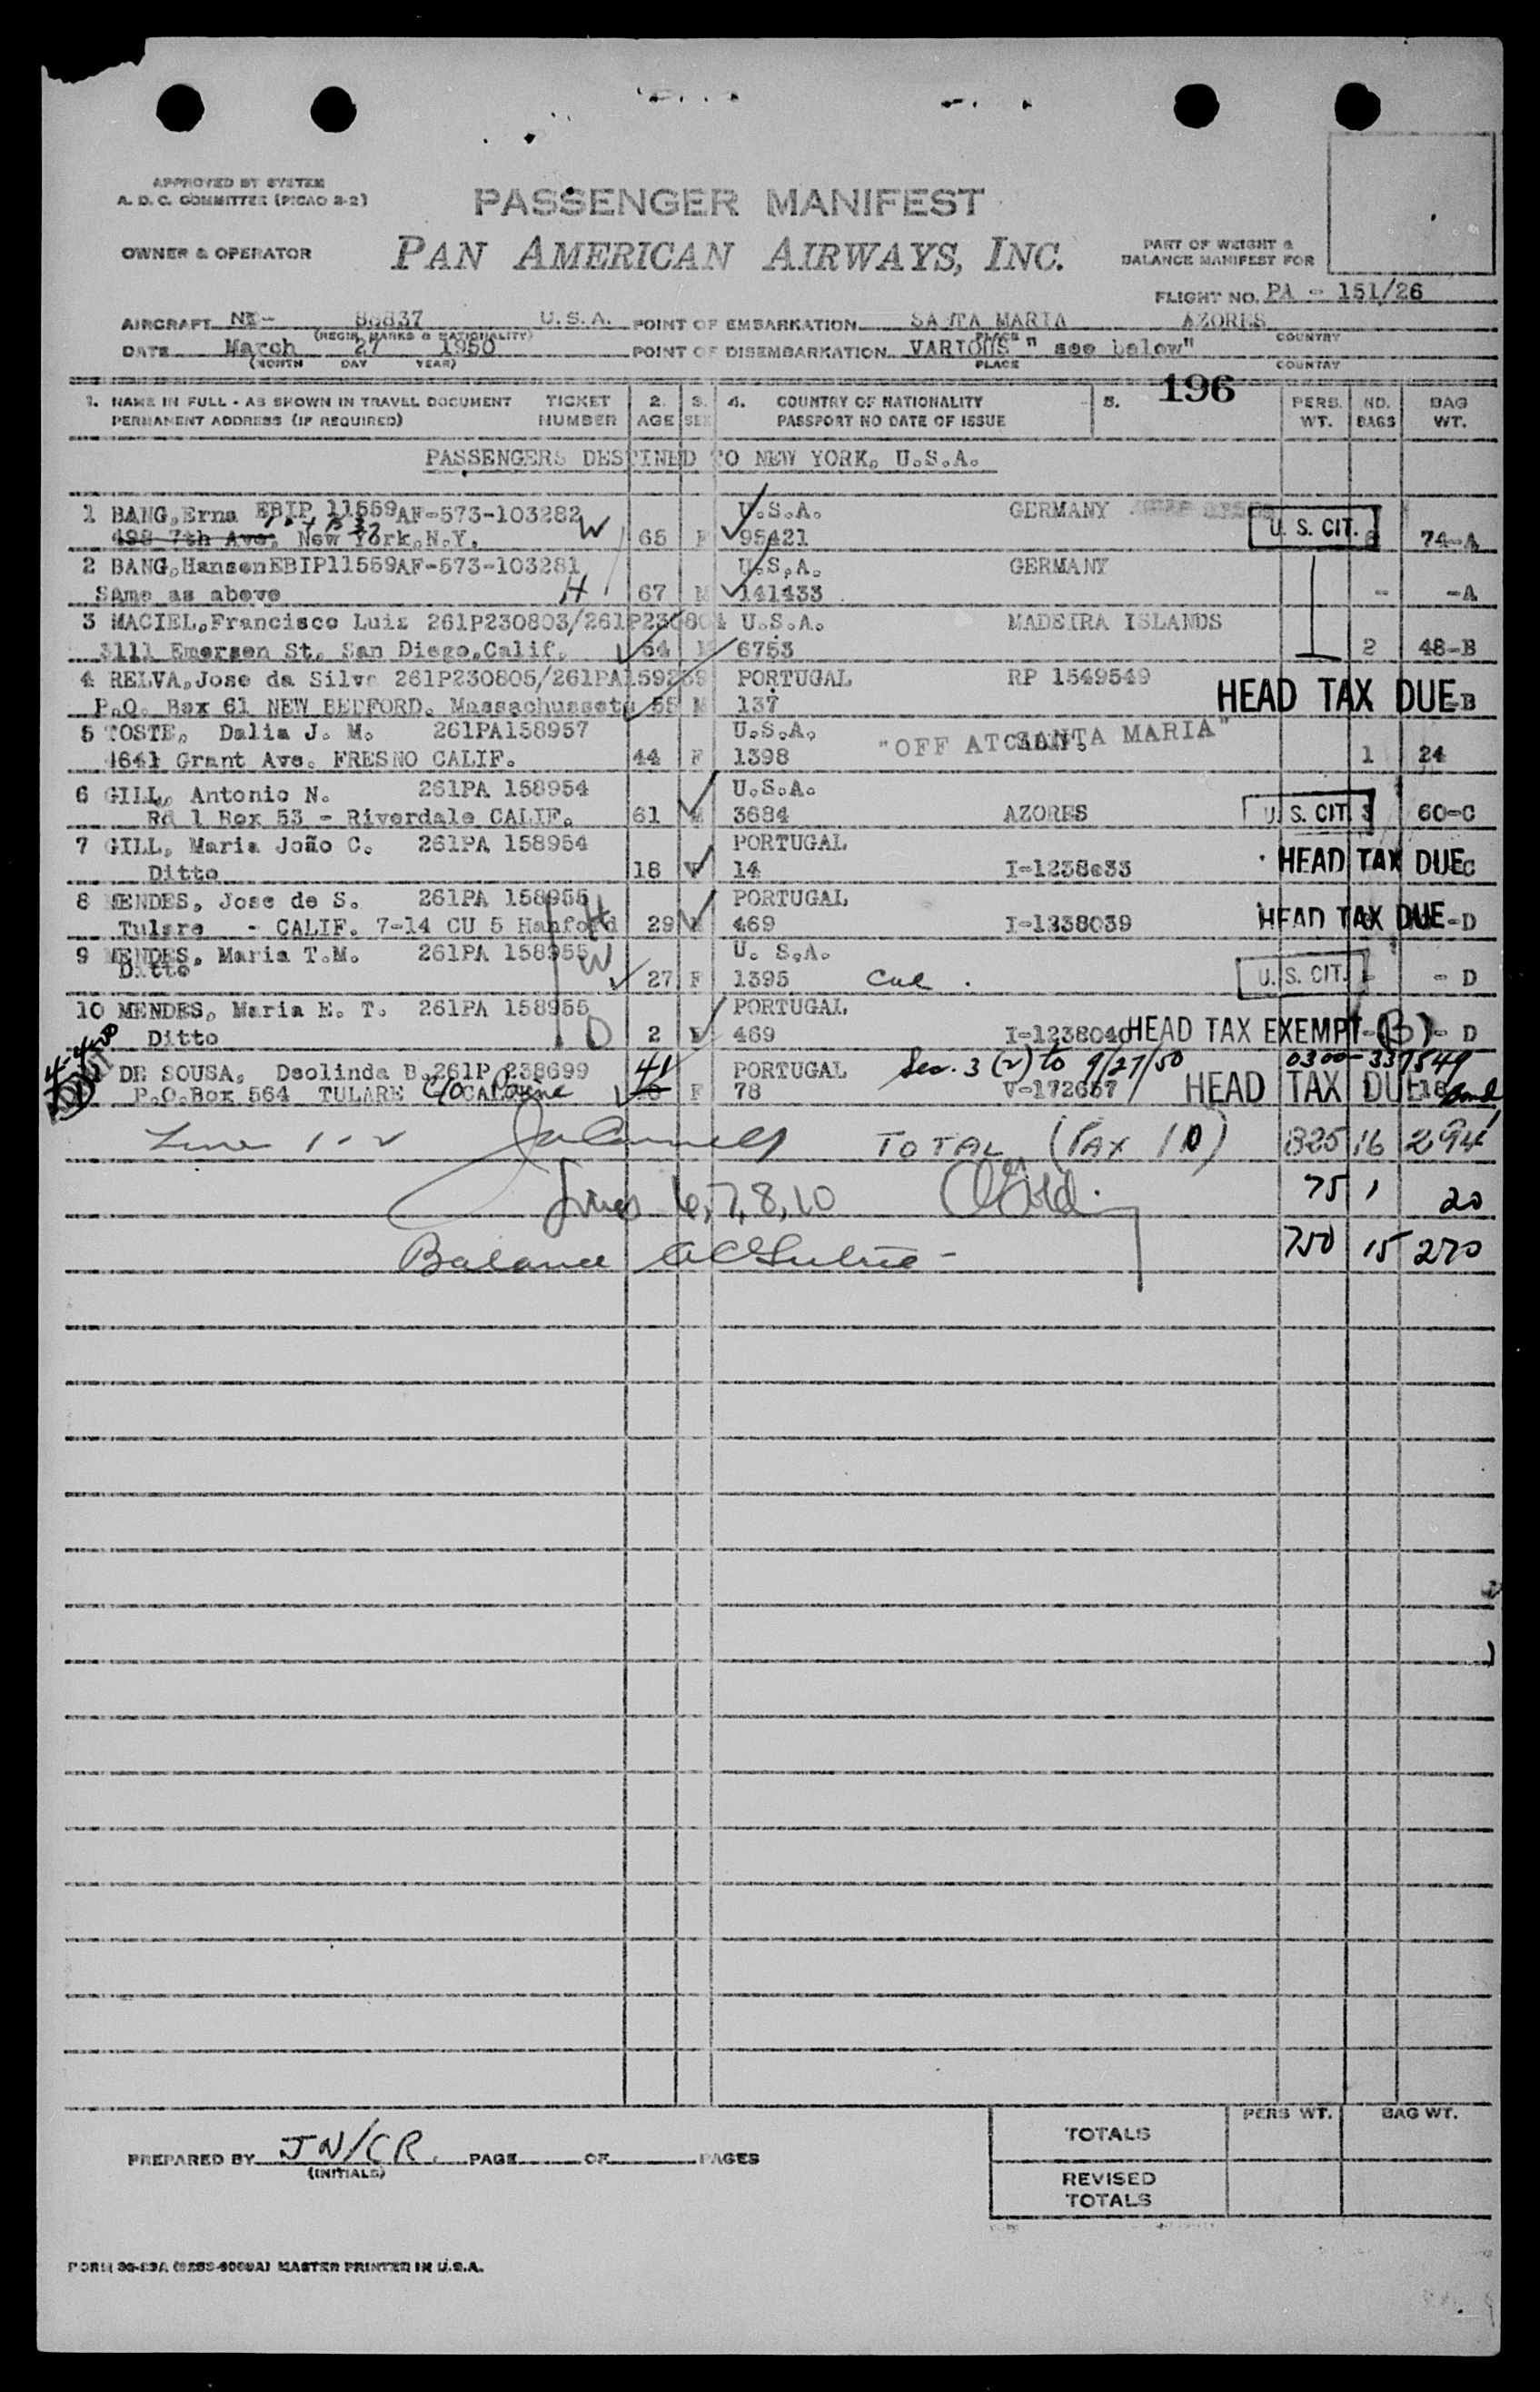 APPROVED BY SYSTEM
A. D. C. COMMITTEE (PICAO 2-2)
PASSENGER MANIFEST
OWNER & OPERATOR
PAN AMERICAN AIRWAYS, INC.
PART OF WEIGHT &
BALANCE MANIFEST FOR
FLIGHT NO. PA - 151/26
AIRCRAFT 88837 U.S.A. POINT OF EMBARKATION SANTA MARIA AZORES
(REGIS. MARKS & NATIONALITY) PLACE COUNTRY
DATE March 27 1950 POINT OF DISEMBARKATION VARIOUS " see below"
(MONTH DAY YEAR) PLACE COUNTRY
196
1. NAME IN FULL - AS SHOWN IN TRAVEL DOCUMENT TICKET 2. 3. 4. COUNTRY OF NATIONALITY 5. PERS. NO. BAG
PERMANENT ADDRESS (IF REQUIRED) NUMBER AGE SEX PASSPORT NO DATE OF ISSUE WT. BAGS WT.
PASSENGERS DESTINED TO NEW YORK, U.S.A.
1 BANG,Erna EBIP 11559AF-573-103282 W U.S.A. GERMANY
498 7th Ave, New York,N.Y. 65 F 95421 U. S. CIT. 74-A
2 BANG,HansenEBIP11559AF-573-103281 U.S.A. GERMANY
SAme as above H 67 M 141433 - -A
3 MACIEL,Francisco Luiz 261P230803/261P230804 U.S.A. MADEIRA ISLANDS
3111 Emersen St. San Diego,Calif. 54 M 6753 2 48-B
4 RELVA,Jose da Silva 261P230805/261PA159239 PORTUGAL RP 1549549
P.O. Box 61 NEW BEDFORD. Massachussets 55 M 137 HEAD TAX DUE -B
5 TOSTE, Dalia J. M. 261PA158957 U.S.A. "OFF AT SANTA MARIA"
1641 Grant Ave. FRESNO CALIF. 44 F 1398 1 24
6 GILL, Antonio N. 261PA 158954 U.S.A.
Rd 1 Box 53 - Riverdale CALIF. 61 M 3684 AZORES U. S. CIT. 3 60-C
7 GILL, Maria João C. 261PA 158954 PORTUGAL
Ditto 18 F 14 I-1238033 HEAD TAX DUE C
8 MENDES, Jose de S. 261PA 158955 H PORTUGAL
Tulare - CALIF. 7-14 CU 5 Hanford 29 M 469 I-1238039 HEAD TAX DUE -D
9 MENDES, Maria T.M. 261PA 158955 W U. S.A.
Ditto 27 F 1395 Cal. U. S. CIT. - - D
10 MENDES, Maria E. T. 261PA 158955 PORTUGAL
Ditto D 2 F 469 I-1238040 HEAD TAX EXEMPT - (B) - D
DE SOUSA, Deolinda B.261P 238699 41 PORTUGAL Sec. 3 (2) to 9/27/50 0300-337549
P.O.Box 564 TULARE c/o CALIF. F 78 V-172657 HEAD TAX DUE 18
Line 1-2 TOTAL (PAX 10) 825 16 294
Lines 6,7,8,10 75 1 20
Balance 750 15 270
TOTALS PERS WT. BAG WT.
PREPARED BY JN/CR. PAGE OF PAGES
(INITIALS)
REVISED
TOTALS
MASTER PRINTER IN U.S.A.